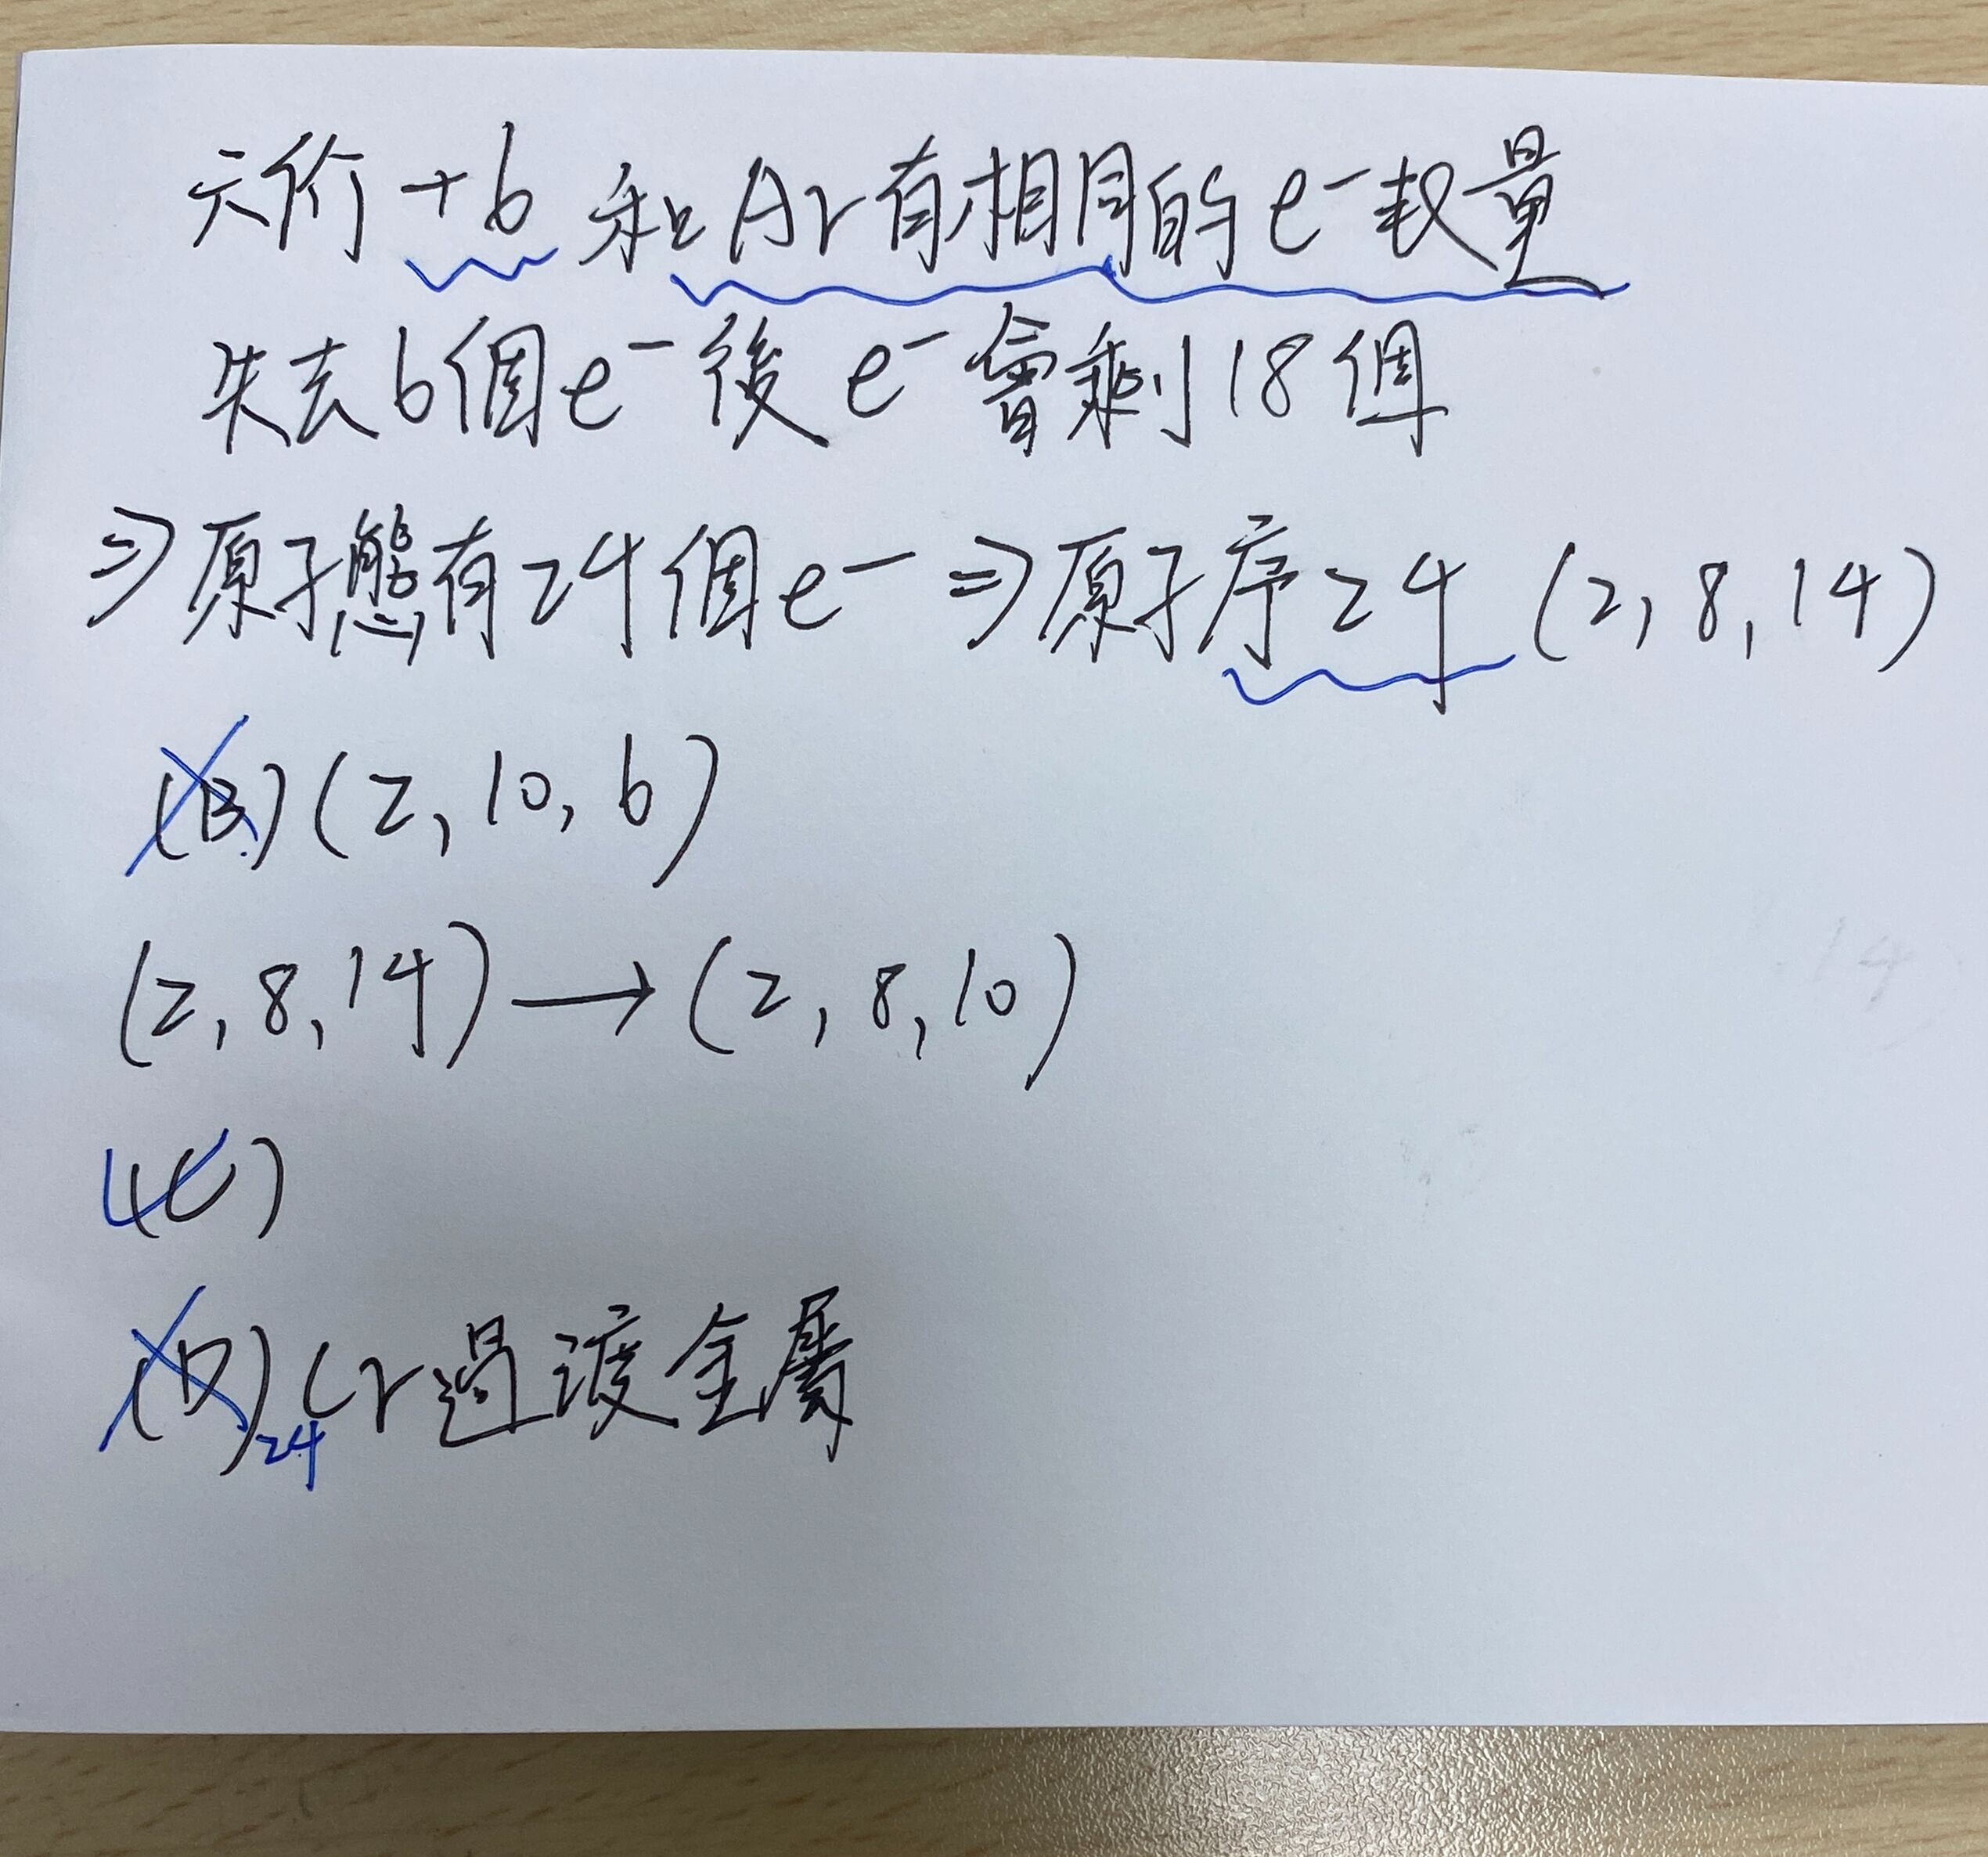 六价 +6 和Ar有相同的e⁻數量
失去6個e⁻後 e⁻會剩18個
⇒原子態有24個e⁻ ⇒原子序24 (2, 8, 14)
(B) (2, 10, 6)
(2, 8, 14) → (2, 8, 10)
(C)
(D) 24Cr過渡金屬